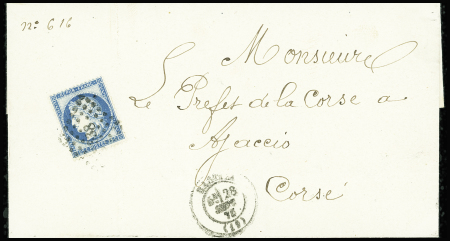 nº 616
Monsieur
Le Prefet de la Corse a
Ajaccio
Corse
28